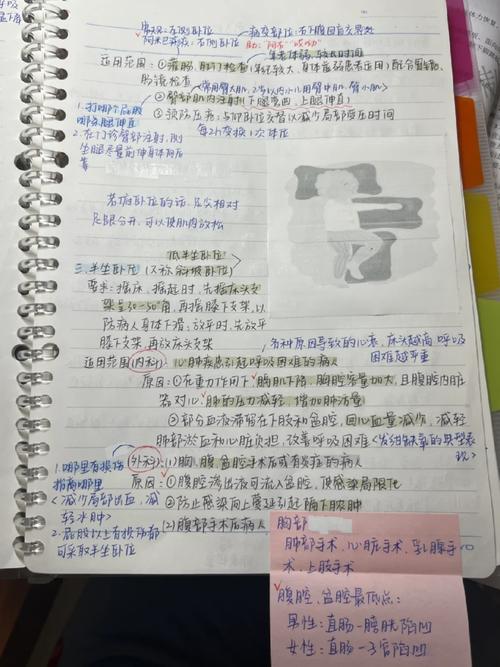 病变部位:右下腹回盲其处
阿米巴痢疾:右侧卧位 助:阿右“哎呦”
适用范围:①灌肠,肛门检查
胃镜检查
②臀部肌内注射(下腿弯曲,上腿伸直)
③预防压疮:与仰卧位交替以减少局部受压时间
每2h变换1次体位
1.打哪个屁股
哪条腿伸直
2.在门诊臀部注射,侧
坐腿尽量前伸身体向后
靠
若病卧位的话,足尖相对
足跟分开,可以使肌肉放松
低半坐卧位
三.半坐卧位(又称斜坡卧位)
要求:摇床,摇起时,先摇床头支
架呈30-50°角,再摇膝下支架,以
防病人身体下滑,放平时,先放平
膝下支架,再放床头支架
各种原因导致的心衰,床头越高,呼吸
困难越严重
适用范围(内科):心肺疾患引起呼吸困难的病人
原因:①在重力作用下,膈肌下降,胸腔容量加大,且腹腔内脏
器对心肺的压力减轻,增加肺活量
②部分血液滞留在下肢和盆腔,回心血量减少,减轻
肺部淤血和心脏负担,改善呼吸困难<发绀缺氧的典型表
现>
(外科):(1)胸、腹、盆腔手术后或有炎症的病人
原因:①腹腔渗出液可流入盆腔,使感染局限化
②防止感染向上蔓延引起膈下脓肿
(2)腹部手术后病人
1.哪里有损伤
抬高哪里
<减少局部出血,减
轻水肿>
2.屁股以上有损伤都
可采取半坐卧位
胸部
肺部手术、心脏手术、乳腺手
术、上肢手术
腹腔、盆腔最低点:
男性:直肠-膀胱陷凹
女性:直肠-子宫陷凹